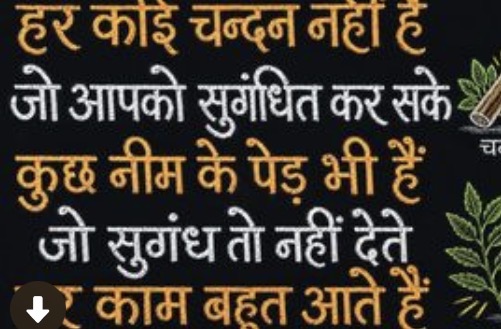 हर कोई चन्दन नहीं है
जो आपको सुगंधित कर सके
कुछ नीम के पेड़ भी हैं
जो सुगंध तो नहीं देते
काम बहुत आते हैं